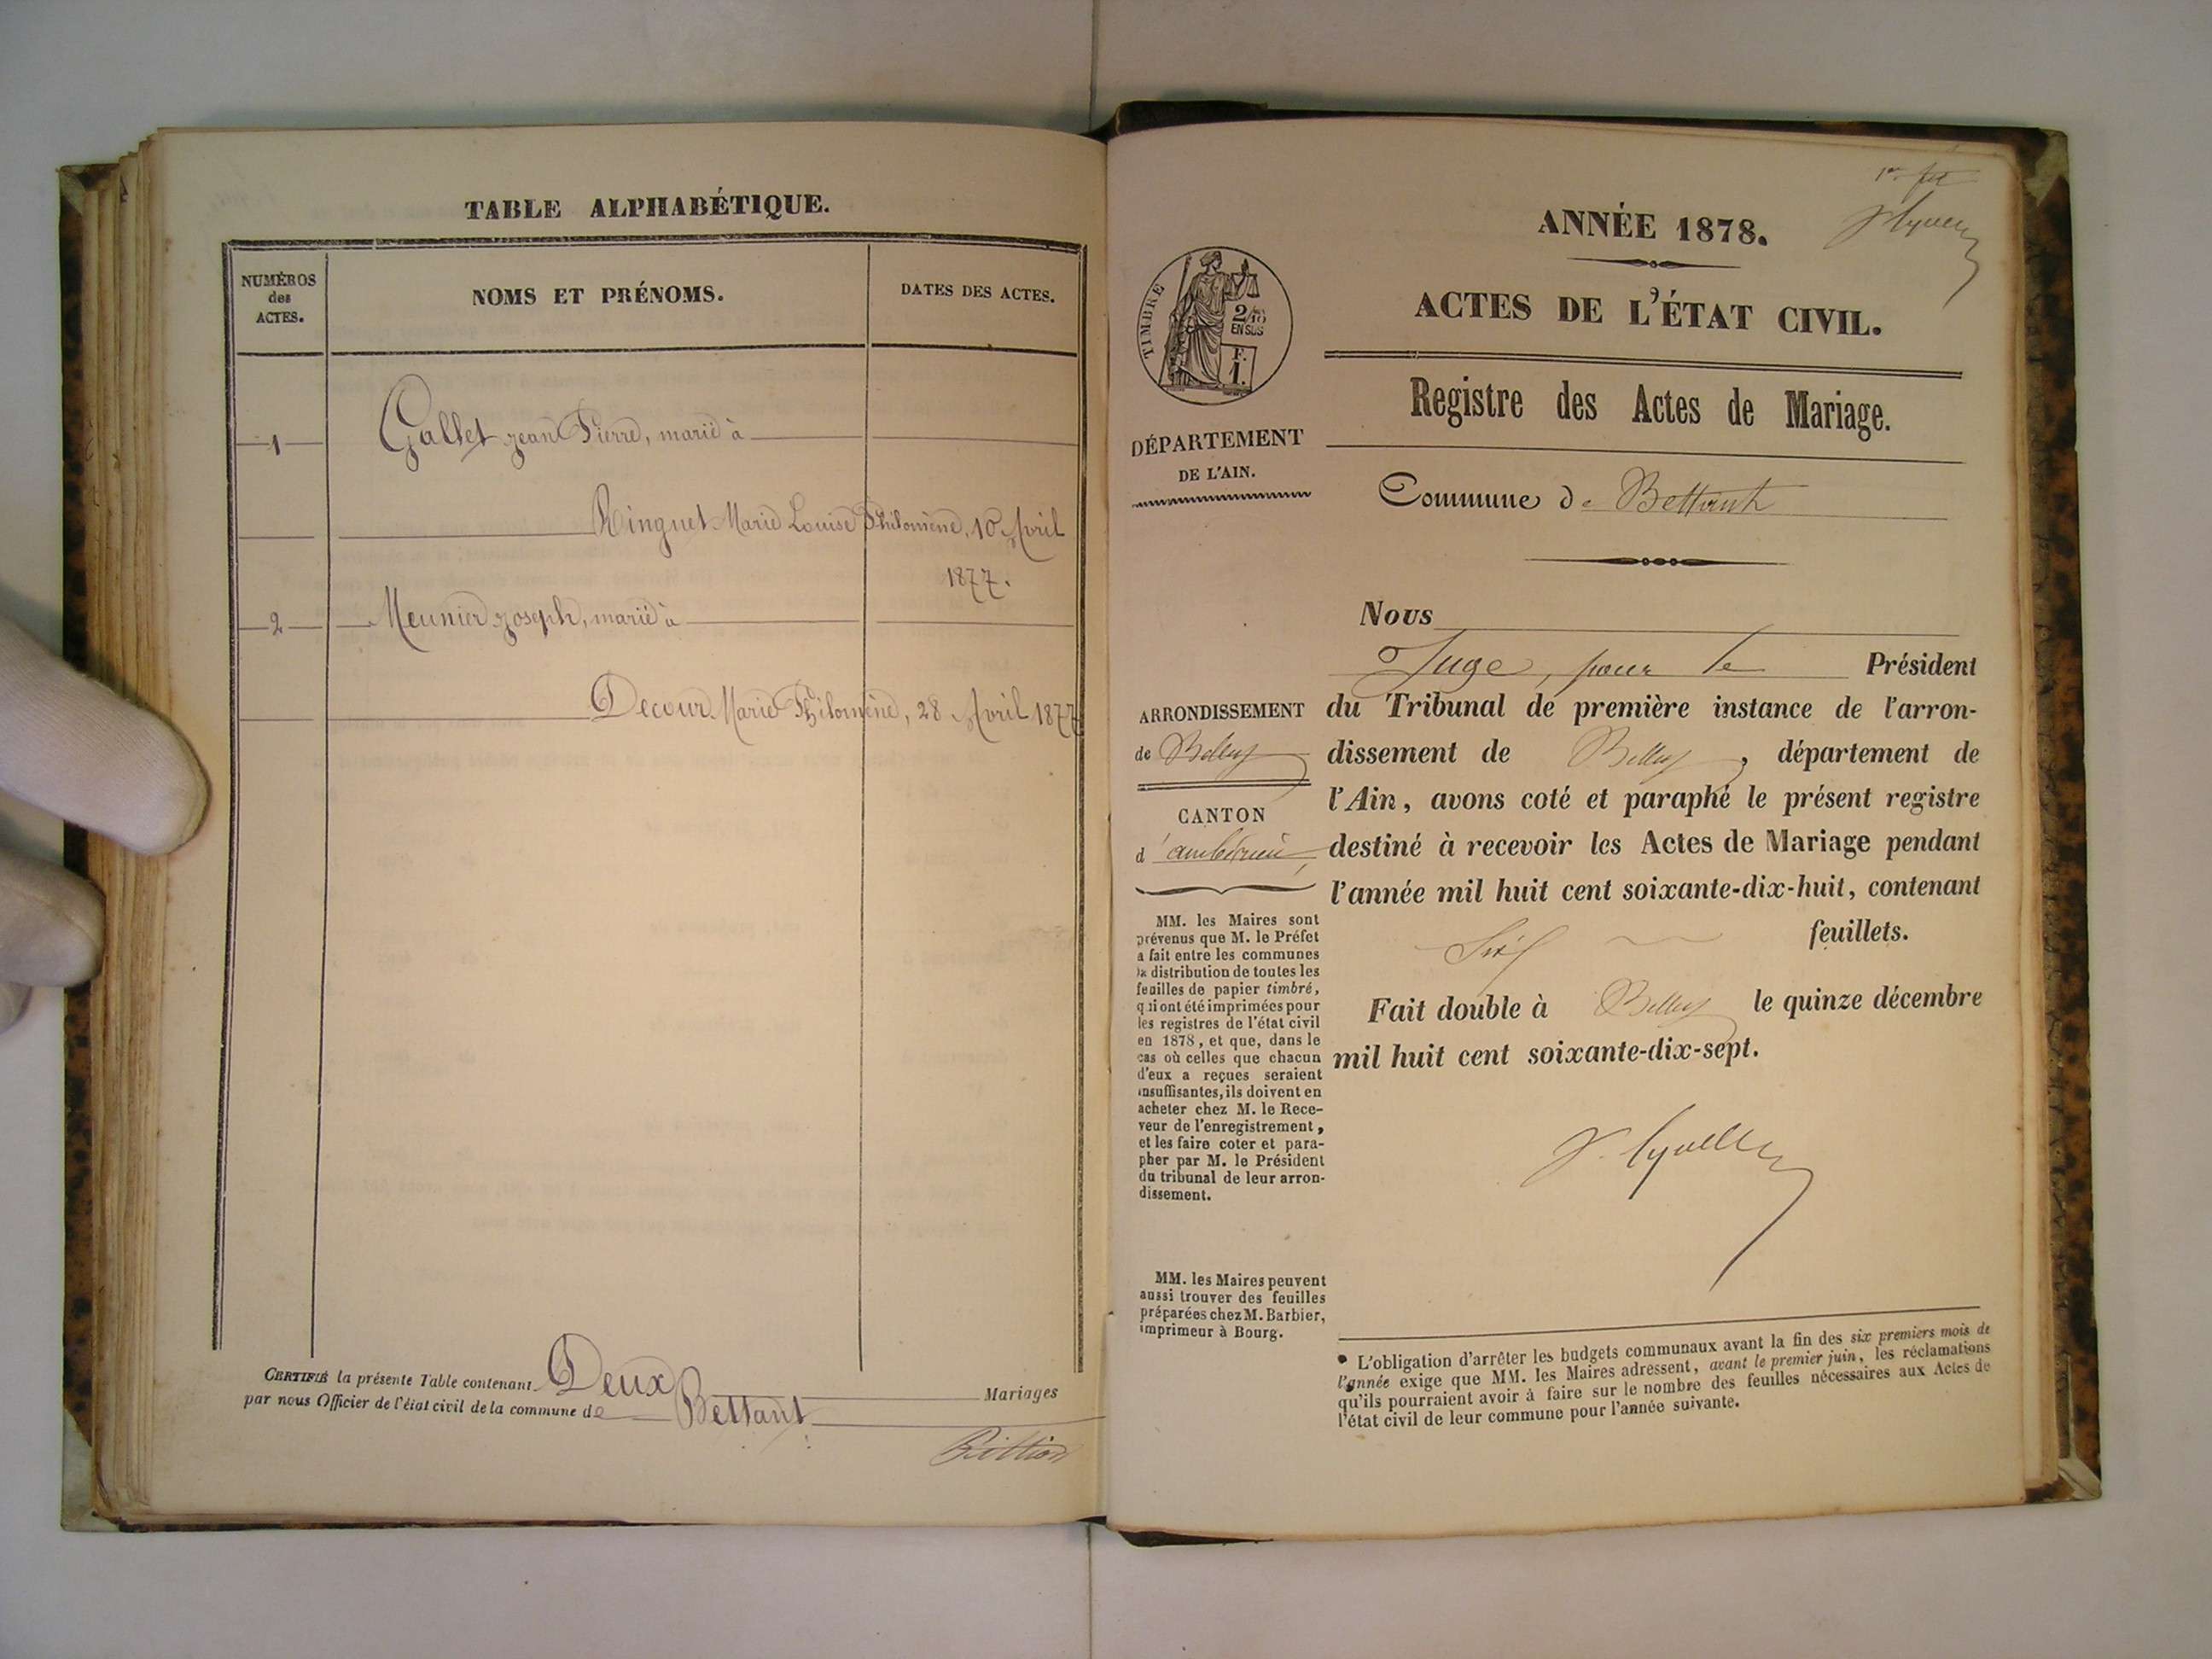 TABLE ALPHABÉTIQUE.
NUMÉROS
des
ACTES.
NOMS ET PRÉNOMS.
DATES DES ACTES.
1 Gallet Jean Pierre, marié à
Ringuet Marie Louise Philomène, 10 Avril
1877.
2 Meunier Joseph, marié à
Decour Marie Philomène, 28 Avril 1877
CERTIFIÉ la présente Table contenant Deux Mariages
par nous Officier de l'état civil de la commune de Bettant
1er
ANNÉE 1878.
TIMBRE
2/10
EN SUS
F.
1.
ACTES DE L'ÉTAT CIVIL.
Registre des Actes de Mariage.
DÉPARTEMENT
DE L'AIN.
Commune de Bettant
Nous
Juge, pour le Président
ARRONDISSEMENT
de Belley
CANTON
d'ambérieu
du Tribunal de première instance de l'arron-
dissement de Belley, département de
l'Ain, avons coté et paraphé le présent registre
destiné à recevoir les Actes de Mariage pendant
l'année mil huit cent soixante-dix-huit, contenant
feuillets.
Fait double à Belley le quinze décembre
mil huit cent soixante-dix-sept.
MM. les Maires sont
prévenus que M. le Préfet
a fait entre les communes
la distribution de toutes les
feuilles de papier timbré,
qui ont été imprimées pour
les registres de l'état civil
en 1878, et que, dans le
cas où celles que chacun
d'eux a reçues seraient
insuffisantes, ils doivent en
acheter chez M. le Rece-
veur de l'enregistrement,
et les faire coter et para-
pher par M. le Président
du tribunal de leur arron-
dissement.
MM. les Maires peuvent
aussi trouver des feuilles
préparées chez M. Barbier,
imprimeur à Bourg.
• L'obligation d'arrêter les budgets communaux avant la fin des six premiers mois de
l'année exige que MM. les Maires adressent, avant le premier juin, les réclamations
qu'ils pourraient avoir à faire sur le nombre des feuilles nécessaires aux Actes de
l'état civil de leur commune pour l'année suivante.